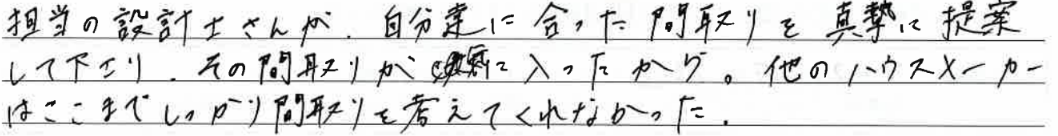 担当の設計士さんが、自分達に合った間取りを真摯に提案
して下さり、その間取りが気に入ったから。他のハウスメーカー
はここまでしっかり間取りを考えてくれなかった。